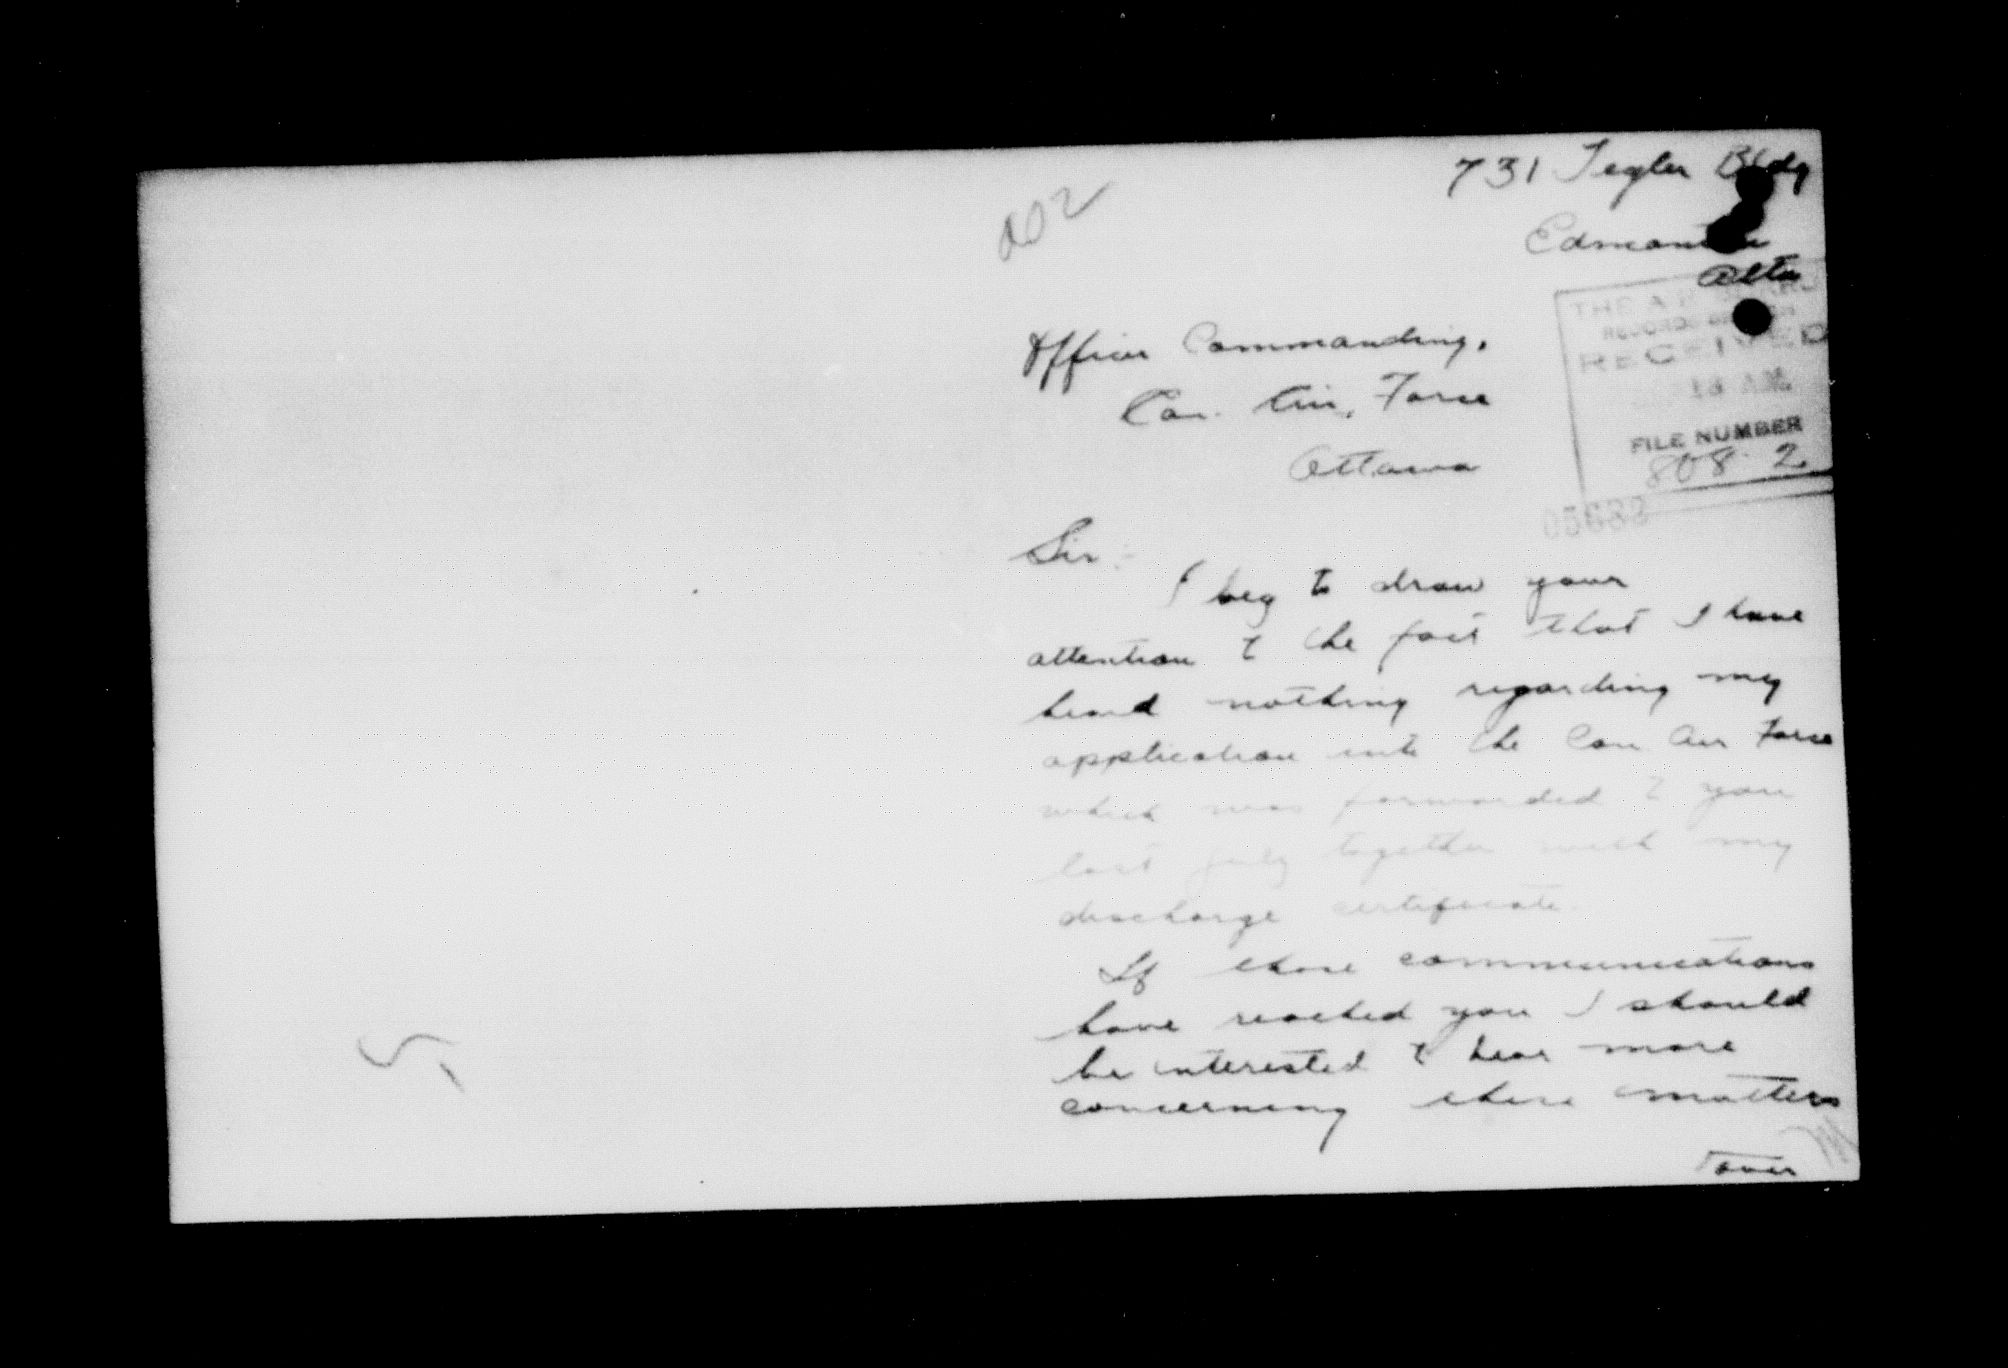 002
731 Tegler Bldg
Edmonton
Alta
THE AIR BOARD
RECORDS
RECEIVED
A.M.
FILE NUMBER
808 2
05633
Officer Commanding,
Can. Air. Force
Ottawa
Sir:
I beg to draw your
attention to the fact that I have
heard nothing regarding my
application into the Can Air Force
which was forwarded to you
last July together with my
discharge certificate.
If these communications
have reached you I should
be interested to hear more
concerning these matters
over